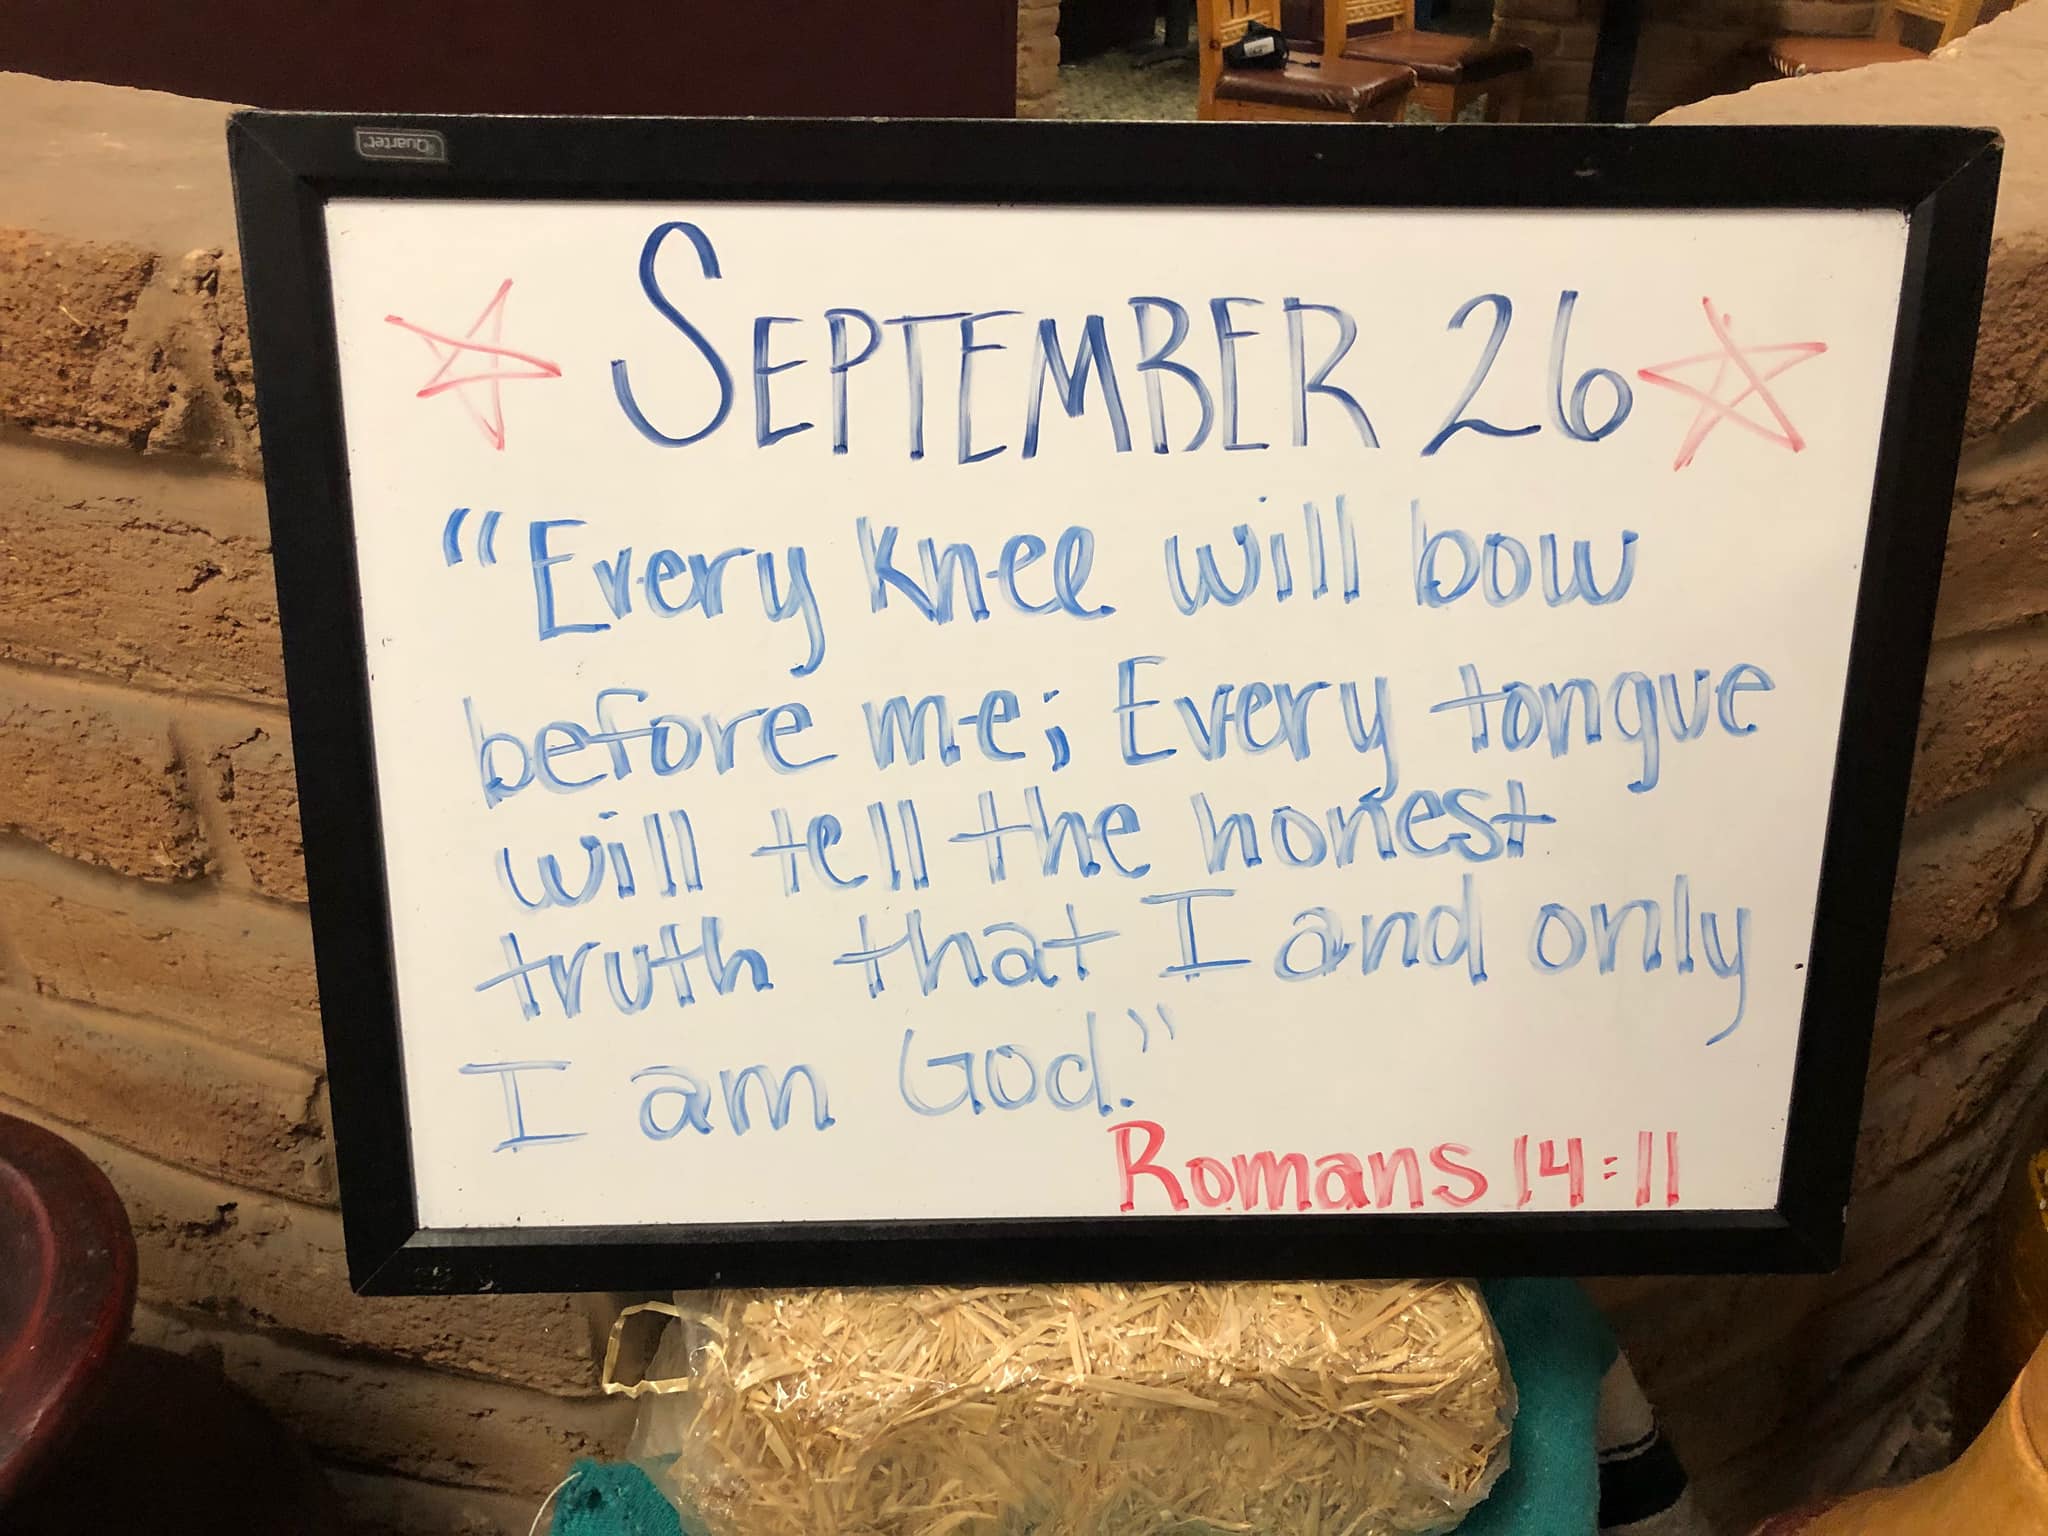 Quartet
SEPTEMBER 26
"Every knee will bow
before me; Every tongue
will tell the honest
truth that I and only
I am God."
Romans 14:11